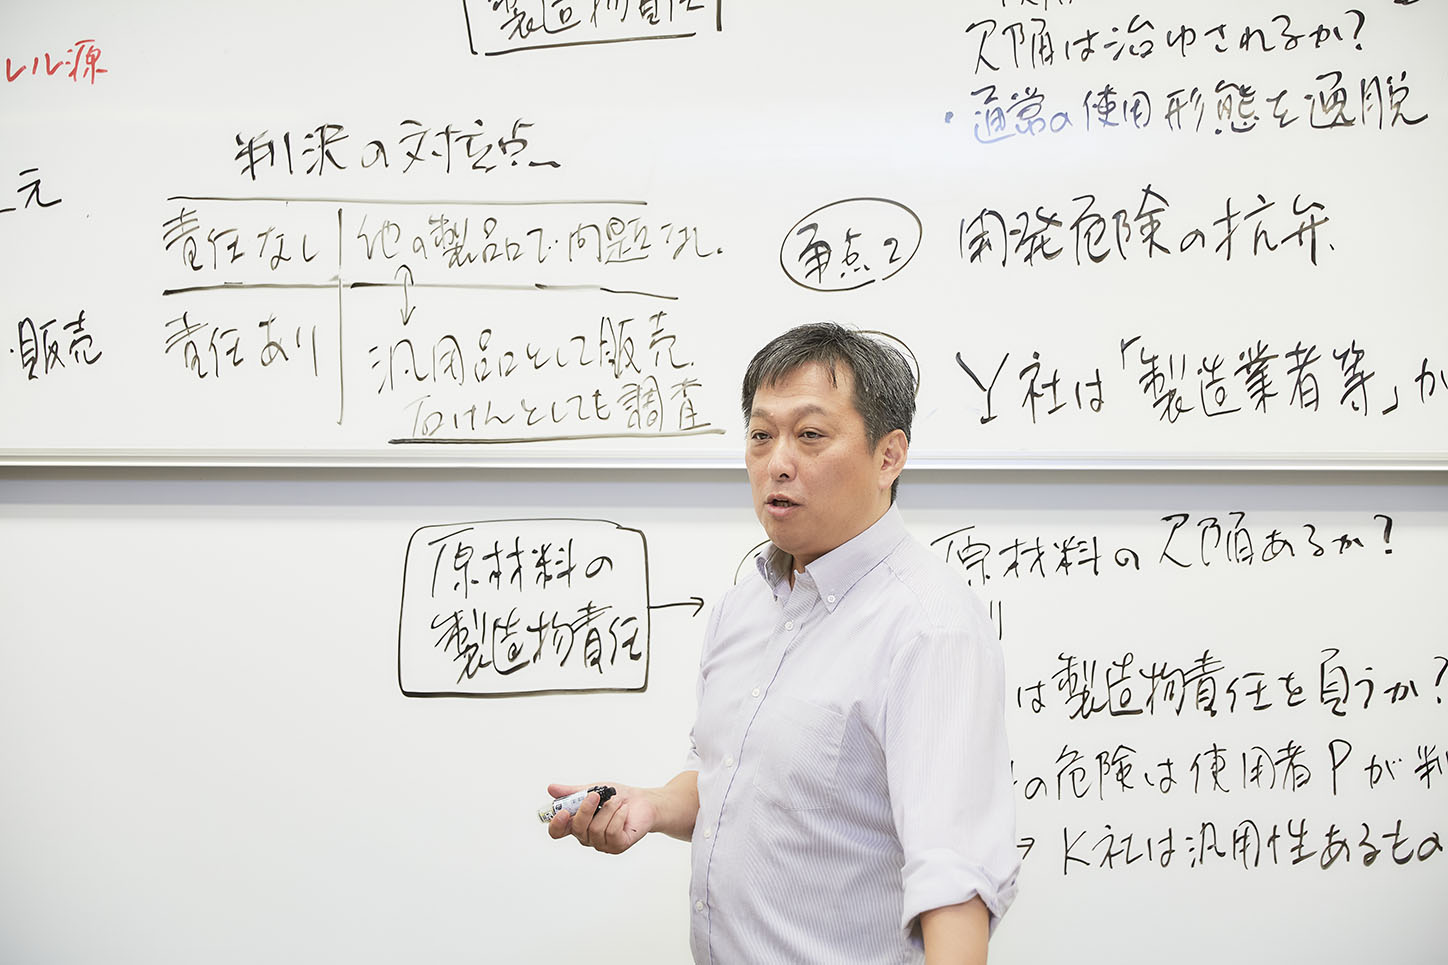 製造物責任
レル源
元
・販売
判決の対立点
責任なし 他の製品で問題なし.
↕
責任あり 汎用品として販売.
石けんとしても調査
欠陥は治ゆされるか?
・通常の使用形態を逸脱
争点2 開発危険の抗弁.
Y社は「製造業者等」か
原材料の
製造物責任 →
原材料の欠陥あるか?
は製造物責任を負うか?
の危険は使用者Pが判
→ K社は汎用性あるもの